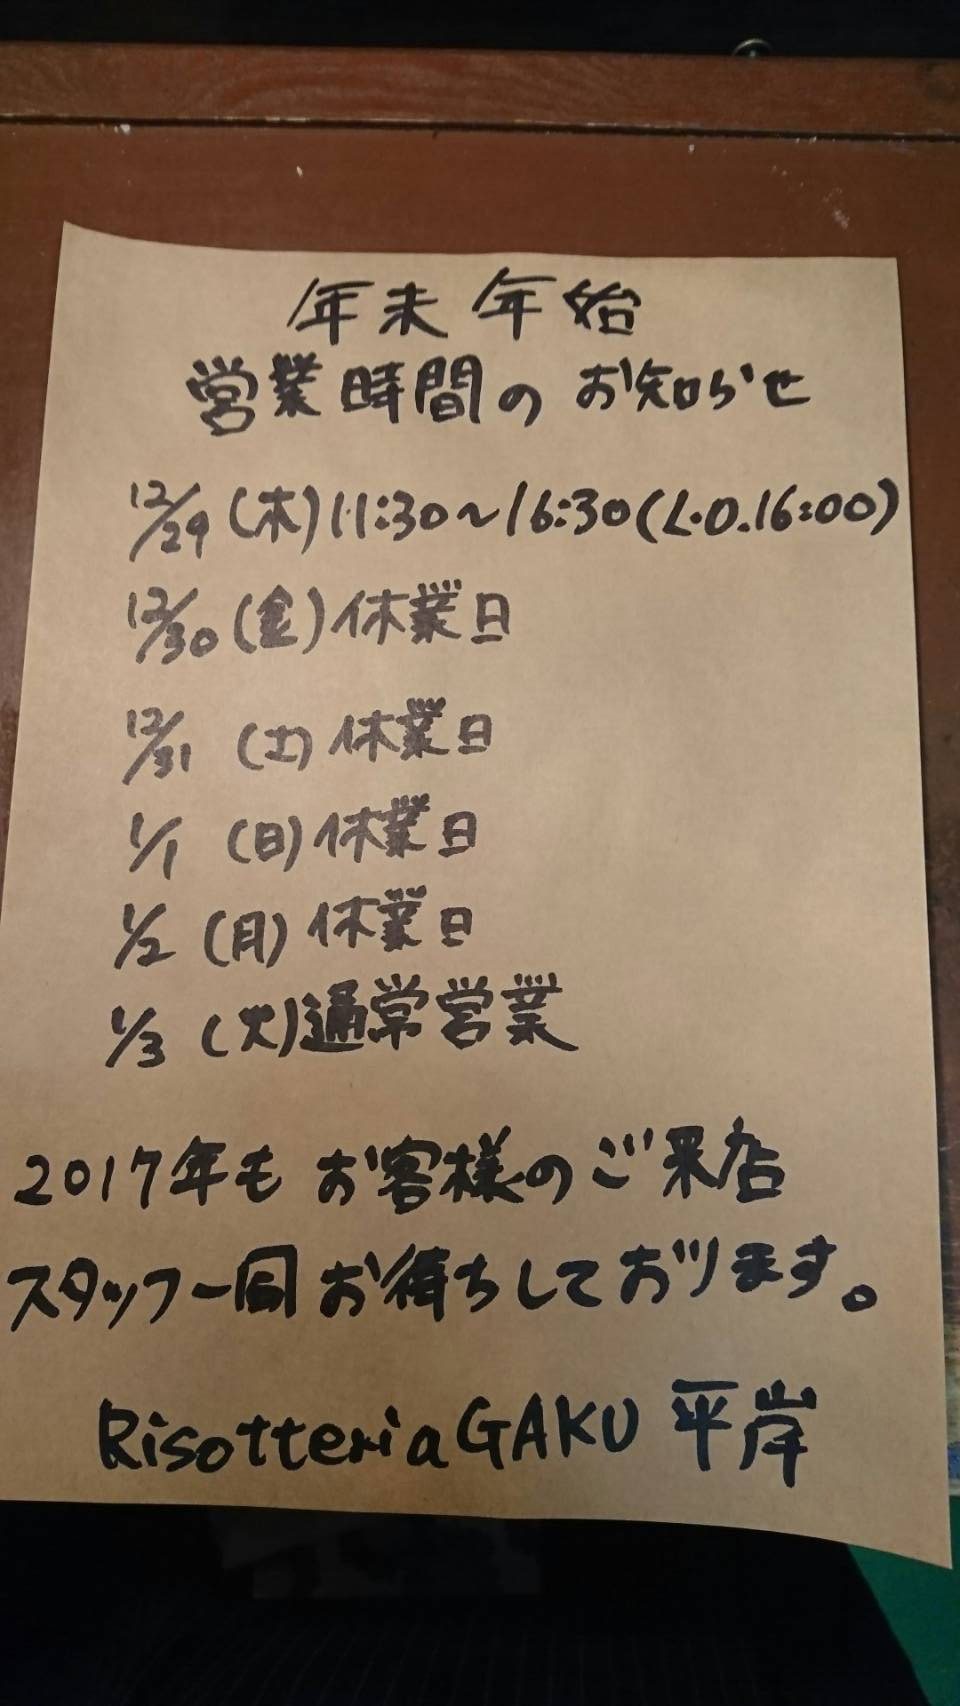 年末年始
営業時間のお知らせ
12/29(木)11:30~16:30(L.O.16:00)
12/30(金)休業日
12/31(土)休業日
1/1(日)休業日
1/2(月)休業日
1/3(火)通常営業
2017年もお客様のご来店
スタッフ一同お待ちしております。
Risotteria GAKU 平岸